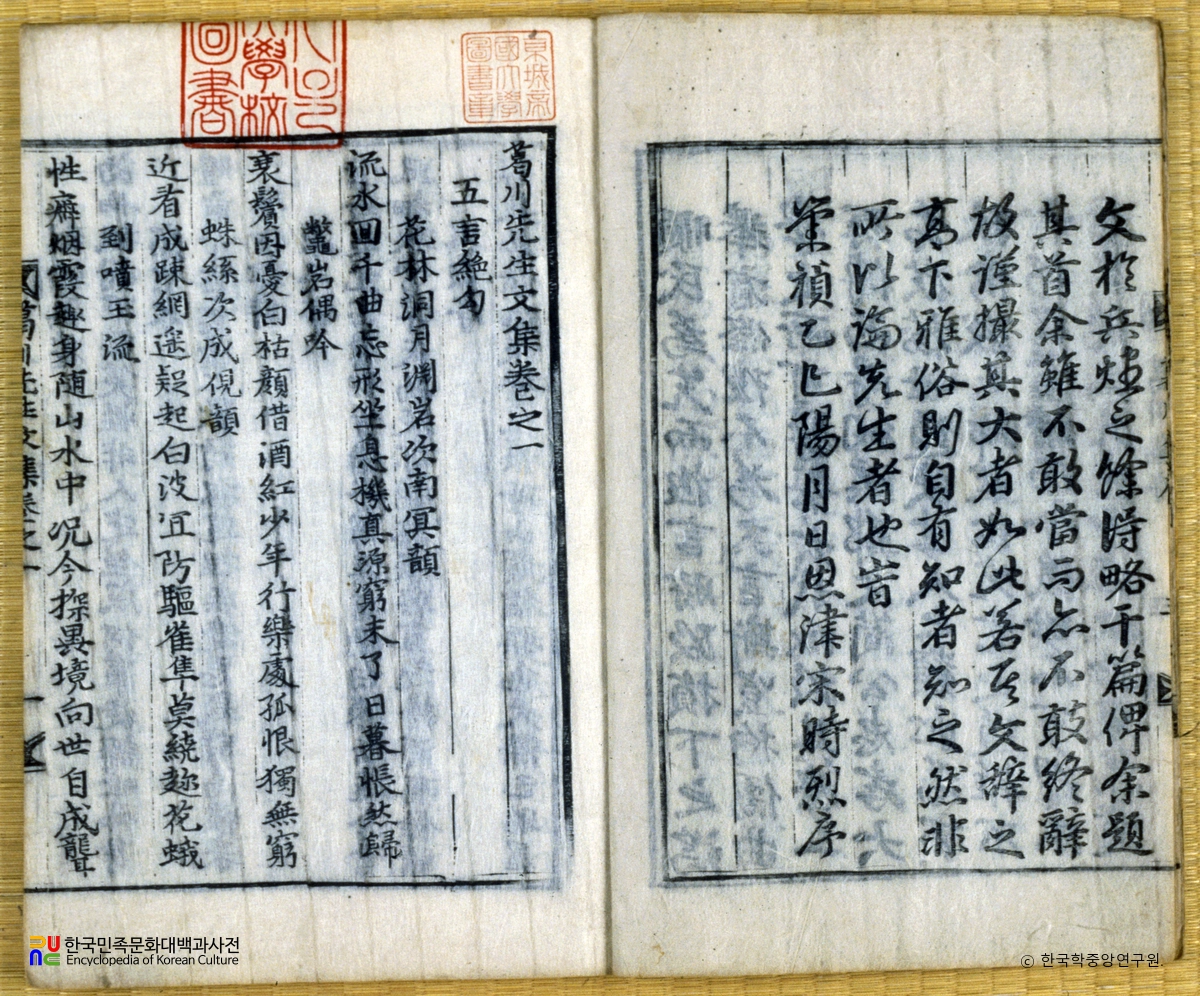 文於兵燼之餘得略干篇俾余題
其首余雖不敢當而亦不敢終辭
故謹撮其大者如此若其文辭之
高下雅俗則自有知者知之然非
所以論先生者也旹
崇禎乙巳陽月日恩津宋時烈序
京城帝
國大學
圖書章
學校
圖書
葛川先生文集卷之一
五言絶句
花林洞月淵岩次南冥韻
流水回千曲忘形坐息機真源窮未了日暮悵然歸
鼈岩偶吟
衰鬢因憂白枯顔借酒紅少年行樂處孤恨獨無窮
蛛絲次成俔韻
近看成踈網遥疑起白波冝防驅雀隼莫繞趂花蛾
到噴玉流
性癖烟霞趣身随山水中况今探異境向世自成聾
葛川先生文集卷之一
한국민족문화대백과사전
Encyclopedia of Korean Culture
ⓒ 한국학중앙연구원